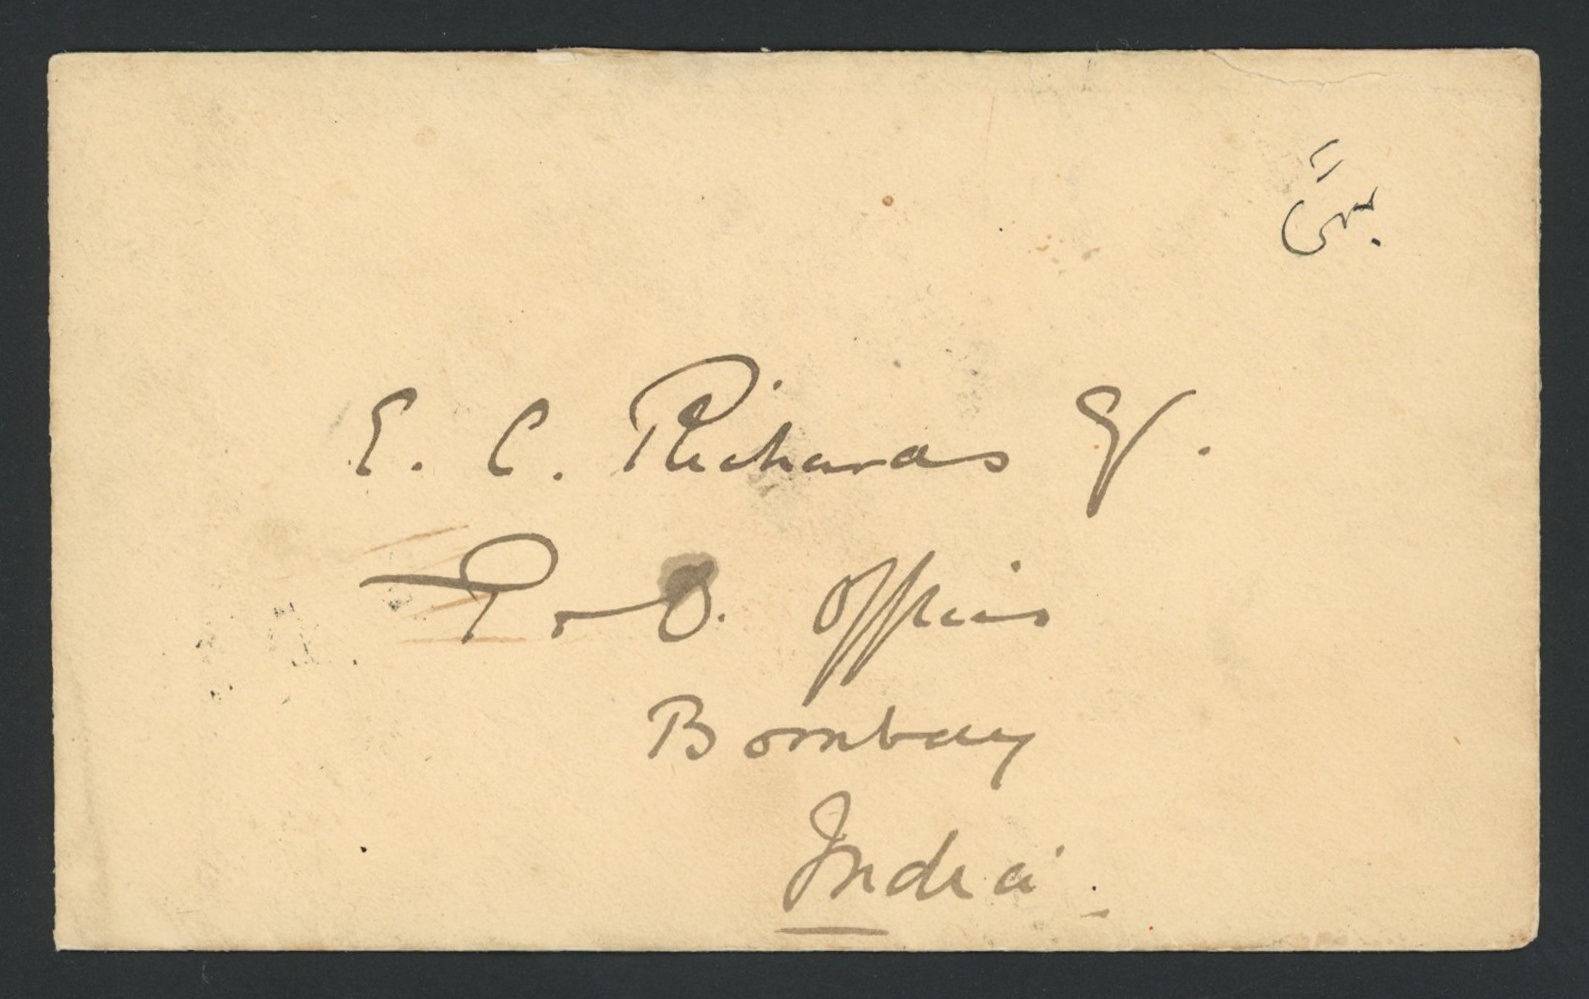 E. C. Richards Esq.
P & O. Offices
Bombay
India.